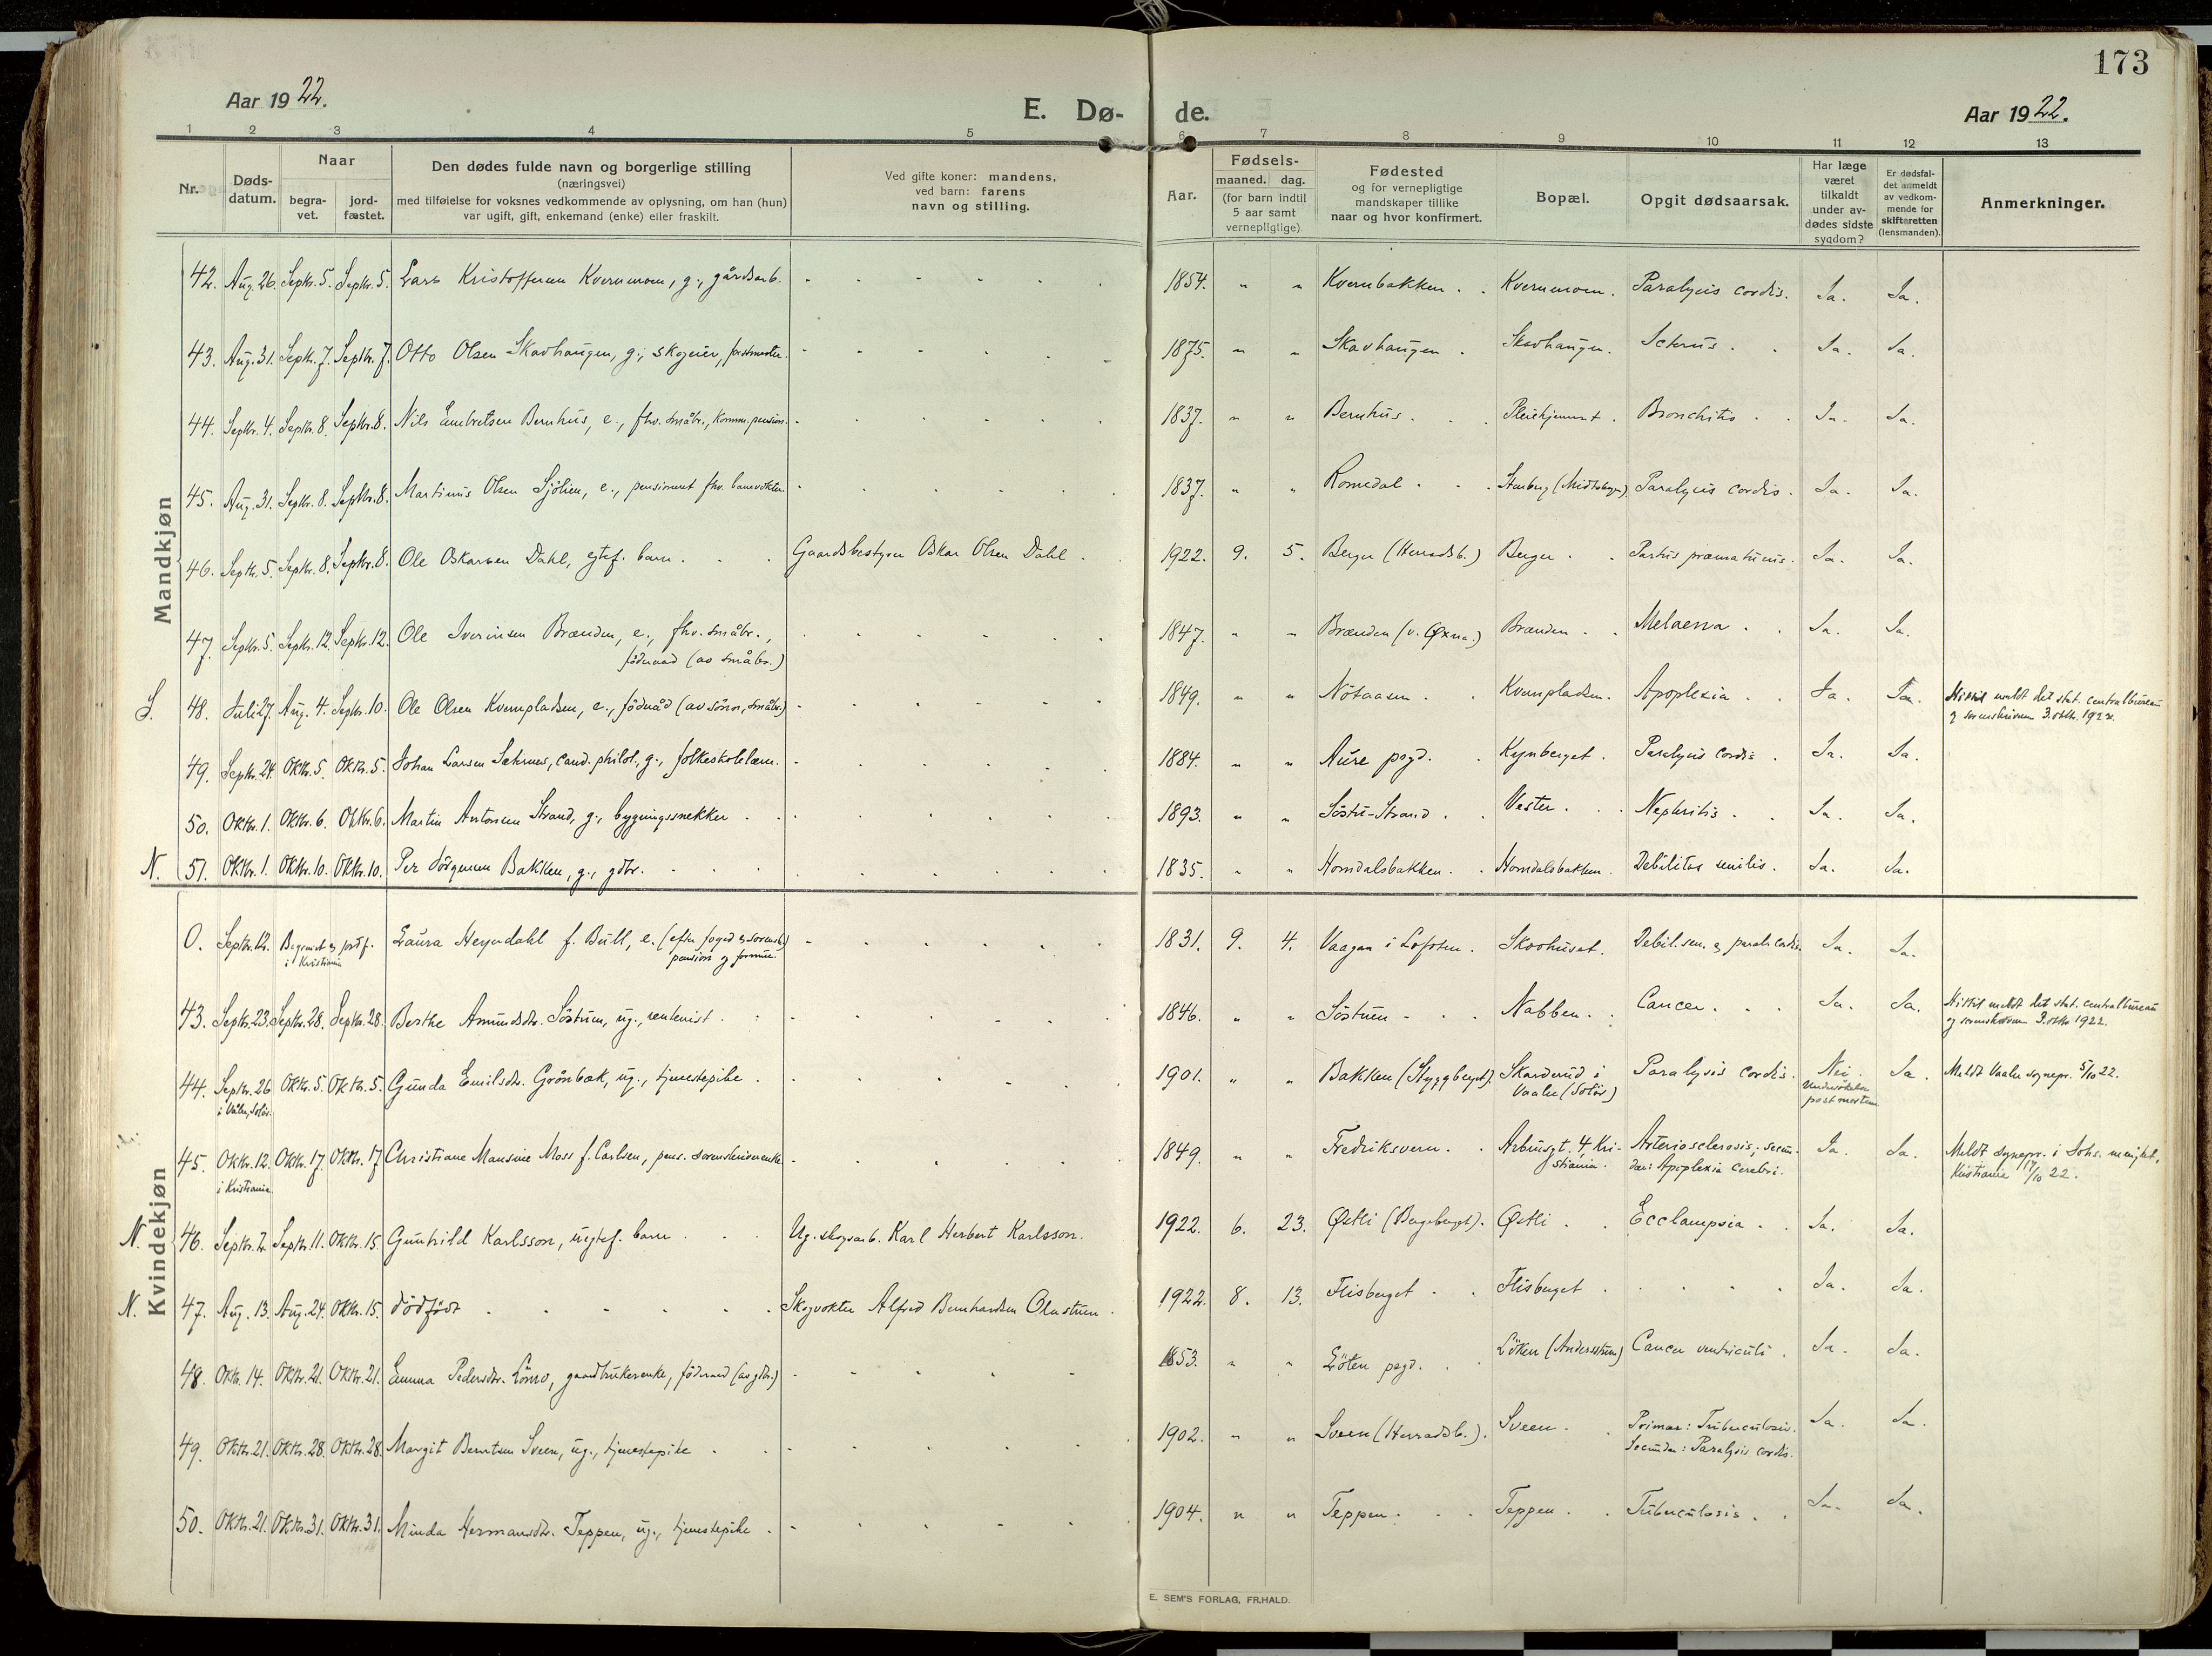 173
Aar 1922.
E. Dø- de.
Aar 1922.
1 2 3 4 5 6 7 8 9 10 11 12 13
Nr.
Døds-
datum.
Naar
begra-
vet.
jord-
fæstet.
Den dødes fulde navn og borgerlige stilling
(næringsvei)
med tilføielse for voksnes vedkommende av oplysning, om han (hun)
var ugift, gift, enkemand (enke) eller fraskilt.
Ved gifte koner: mandens,
ved barn: farens
navn og stilling.
Aar.
Fødsels-
maaned. dag.
(for barn indtil
5 aar samt
vernepligtige)
Fødested
og for vernepligtige
mandskaper tillike
naar og hvor konfirmert.
Bopæl.
Opgit dødsaarsak.
Har læge
været
tilkaldt
under av-
dødes sidste
sygdom?
Er dødsfal-
det anmeldt
av vedkom-
mende for
skifteretten
(lensmanden).
Anmerkninger.
Mandkjøn
42. Aug. 26. Septbr. 5. Septbr. 5. Lars Kristoffersen Kvernmoen, g., gårdsarb. 1854. " " Kvernbakken. Kvernmoen. Paralysis cordis. Ja. Ja.
43. Aug. 31. Septbr. 7. Septbr. 7. Otto Olsen Skavhaugen, g., skogeier, forstmester. 1875. " " Skavhaugen. Skavhaugen. Icterus. Ja. Ja.
44. Septbr. 4. Septbr. 8. Septbr. 8. Nils Embretsen Bernhus, e., fhv. småbr., komm. pension. 1837. " " Bernhus. Pleiehjemmet. Bronchitis. Ja. Ja.
45. Aug. 31. Septbr. 8. Septbr. 8. Martinus Olsen Sjölien, e., pensioneret fhv. banevokter. 1837. " " Romedal. Stenberg (Midtskogen). Paralysis cordis. Ja. Ja.
46. Septbr. 5. Septbr. 8. Septbr. 8. Ole Oskarsen Dahl, egtef. barn. Gaardsbestyrer Oskar Olsen Dahl. 1922. 9. 5. Berger (Herradsb.) Berger. Partus præmaturus. Ja. Ja.
47. Septbr. 5. Septbr. 12. Septbr. 12. Ole Iversen Brænden, e., fhv. småbr.,
föderaad (av småbr.) 1847. " " Brænden (v. Øxna.) Brænden. Melaena. Ja. Ja.
S. 48. Juli 27. Aug. 4. Septbr. 10. Ole Olsen Kvernpladsen, e., föderåd (av sönn, småbr.) 1849. " " Nötaasen. Kvernpladsen. Apoplexia. Ja. Ja. meldt det stat. centralbureau
og sorenskriveren 3. oktbr. 1922.
49. Septbr. 24. Oktbr. 5. Oktbr. 5. Johan Larsen Sæhrnes, cand. philol., g., folkeskolelærer. 1884. " " Aure pgd. Kynberget. Paralysis cordis. Ja. Ja.
50. Oktbr. 1. Oktbr. 6. Oktbr. 6. Martin Antonsen Strand, g., bygningssnekker. 1893. " " Söstu-Strand. Vester. Nephritis. Ja. Ja.
N. 51. Oktbr. 1. Oktbr. 10. Oktbr. 10. Per Jörgensen Bakken, g., gdbr. 1835. " " Horndalsbakken. Horndalsbakken. Debilitas senilis. Ja. Ja.
Kvindekjøn
0. Septbr. 12. Begravet og jordf.
i Kristiania Laura Heyerdahl f. Bull, e. (efter foged og sorenskr.)
pension og formue. 1831. 9. 4. Vaagan i Lofoten. Skovhuset. Debil. sen. og paral. cordis. Ja. Ja.
43. Septbr. 23. Septbr. 28. Septbr. 28. Berthe Amundsdtr. Söstuen, ug., rentenist. 1846. " " Söstuen. Nabben. Cancer. Ja. Ja. meldt det stat. centralbureau
og sorenskriveren 3. oktbr 1922.
44. Septbr. 26
i Våler, Solör. Oktbr. 5. Oktbr. 5. Gunda Emilsdtr. Grönbæk, ug., tjenestepike. 1901. " " Bakken (Styggberget). Skarderud i
Vaaler (Solör) Paralysis cordis. Nei.
Undersökelse
post mortem Ja. Meldt Vaaler sognepr. 5/10 22.
45. Oktbr. 12.
i Kristiania Oktbr. 17. Oktbr. 17 Christiane Mansine Moss f. Carlsen, pens. sorenskriverenke. 1849. " " Fredriksvern. Arbinsgt. 4, Kri-
stiania. Arteriosclerosis; secun-
dær: Apoplexia cerebri. Ja. Ja. Meldt sognepr. i Johs. menighet,
Kristiania 17/10 22.
N. 46. Septbr. 2. Septbr. 11. Oktbr. 15. Gunhild Karlsson, uegtef. barn. Ug. skogsarb. Karl Herbert Karlsson. 1922. 6. 23. Østli (Bergeberget). Østli. Ecclampsia. Ja. Ja.
N. 47. Aug. 13. Aug. 24. Oktbr. 15. dödfödt. Skogvokter Alfred Bernhardsen Olastuen. 1922. 8. 13. Flisberget. Flisberget. Ja. Ja.
48. Oktbr. 14. Oktbr. 21. Oktbr. 21. Emma Pedersdtr. Lömo, gaardbrukerenke, föderaad (av gdbr.) 1853. " " Löten pgd. Löken (Andersstuen) Cancer ventriculi. Ja. Ja.
49. Oktbr. 21. Oktbr. 28. Oktbr. 28. Margit Berntsen Sveen, ug., tjenestepike. 1902. " " Sveen (Herradsb.). Sveen. Primær: Tuberculosis.
Secundær: Paralysis cordis. Ja. Ja.
50. Oktbr. 21. Oktbr. 31. Oktbr. 31. Minda Hermansdtr. Teppen, ug., tjenestepike. 1904. " " Teppen. Teppen. Tuberculosis. Ja. Ja.
E. SEM'S FORLAG, FR.HALD.